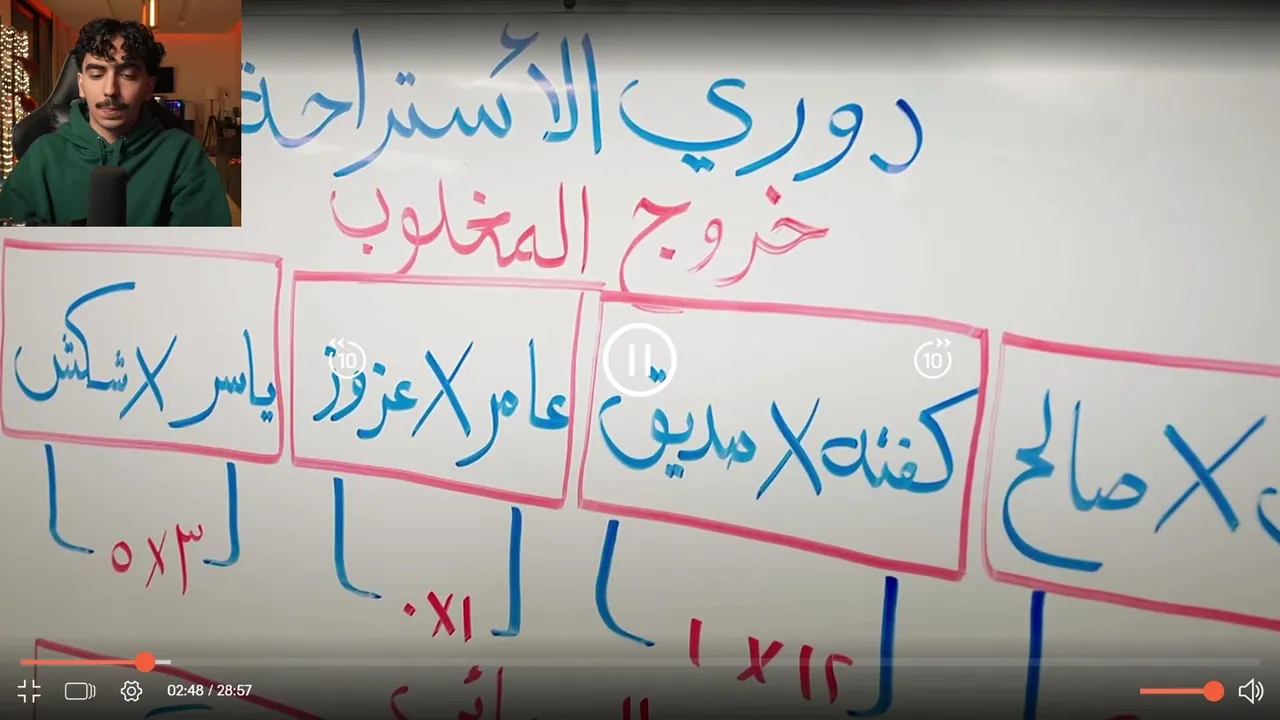 دوري الأستراحة
خروج المغلوب
X صالح
كفته X صديق
عامر X عزوز
ياسر X شكش
١٢ X ١
١ X ٠
٣ X ٥
10
10
02:48 / 28:57